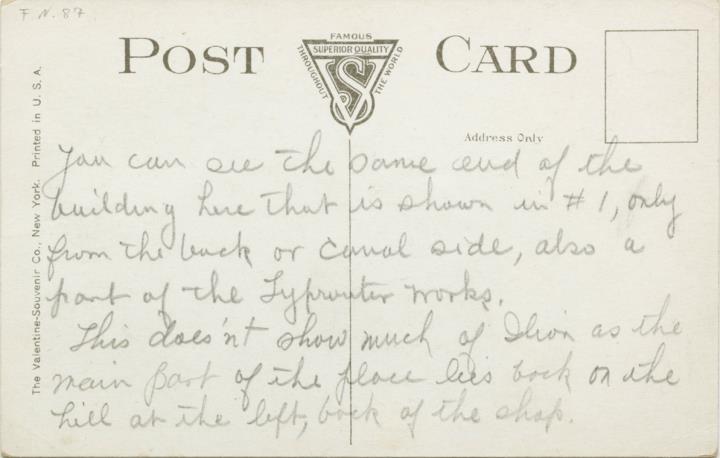 F. N. 87
POST CARD
FAMOUS
SUPERIOR QUALITY
THROUGHOUT THE WORLD
VS
Address Only
The Valentine-Souvenir Co., New York. Printed in U. S. A.
You can see the same end of the
building here that is shown in # 1, only
from the back or canal side, also a
part of the Typewriter works.
This does'nt show much of Ilion as the
main part of the place lies back on the
hill at the left, back of the shop.